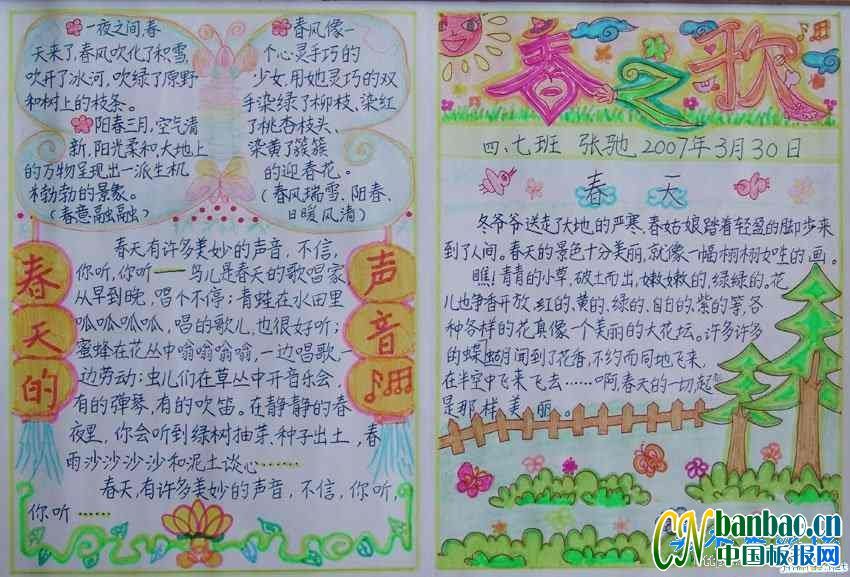 一夜之间,春
天来了,春风吹化了积雪,
吹开了冰河,吹绿了原野
和树上的枝条。
阳春三月,空气清
新,阳光柔和,大地上
的万物呈现出一派生机
勃勃的景象。
(春意融融)
春风像一
个心灵手巧的
少女,用她灵巧的双
手染绿了柳枝、染红
了桃杏枝头、
染黄了簇簇
的迎春花。
(春风瑞雪、阳春、
日暖风清)
春天的
声音
春天有许多美妙的声音,不信,
你听,你听——鸟儿是春天的歌唱家,
从早到晚,唱个不停;青蛙在水田里
呱呱呱呱,唱的歌儿,也很好听;
蜜蜂在花丛中嗡嗡嗡嗡,一边唱歌,一
边劳动;虫儿们在草丛中开音乐会,
有的弹琴,有的吹笛。在静静的春
夜里,你会听到绿树抽芽,种子出土,春
雨沙沙沙沙和泥土谈心……
春天,有许多美妙的声音,不信,你听,
你听……
春之歌
四、七班 张驰 2007年3月30日
春天
冬爷爷送走了大地的严寒,春姑娘踏着轻盈的脚步来
到了人间。春天的景色十分美丽,就像一幅栩栩如生的画。
瞧!青青的小草,破土而出,嫩嫩的,绿绿的。花
儿也争香开放,红的、黄的、绿的、白的、紫的等,各
种各样的花真像一个美丽的大花坛。许多许多
的蝶 间到了花香,不约而同地飞来,
在半空中飞来飞去……啊,春天的一切起
是那样美丽。
CN banbao.cn
中国板报网